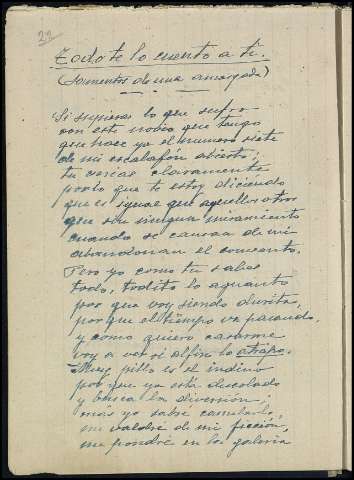 22
Todo te lo cuento a ti.
(Lamentos de una amargada)
Si supieras lo que sufro
con este novio que tengo
que hace ya el numero siete
de mi escalafón abierto,
tu verias claramente
por lo que te estoy diciendo
que es igual que aquellos otros
que sin ningun miramiento
cuando se cansan de mi
abandonan el convento.
Pero yo como tu sabes
todo, todito lo aguanto
por que voy siendo durita,
porque el tiempo va pasando,
y como quiero casarme
voy a ver si al fin lo atrapo.
Muy pillo es el indino
por que ya está descolado
y busca la diversión;
más yo sabré
me valdré de mi ficción,
me pondré en la galeria